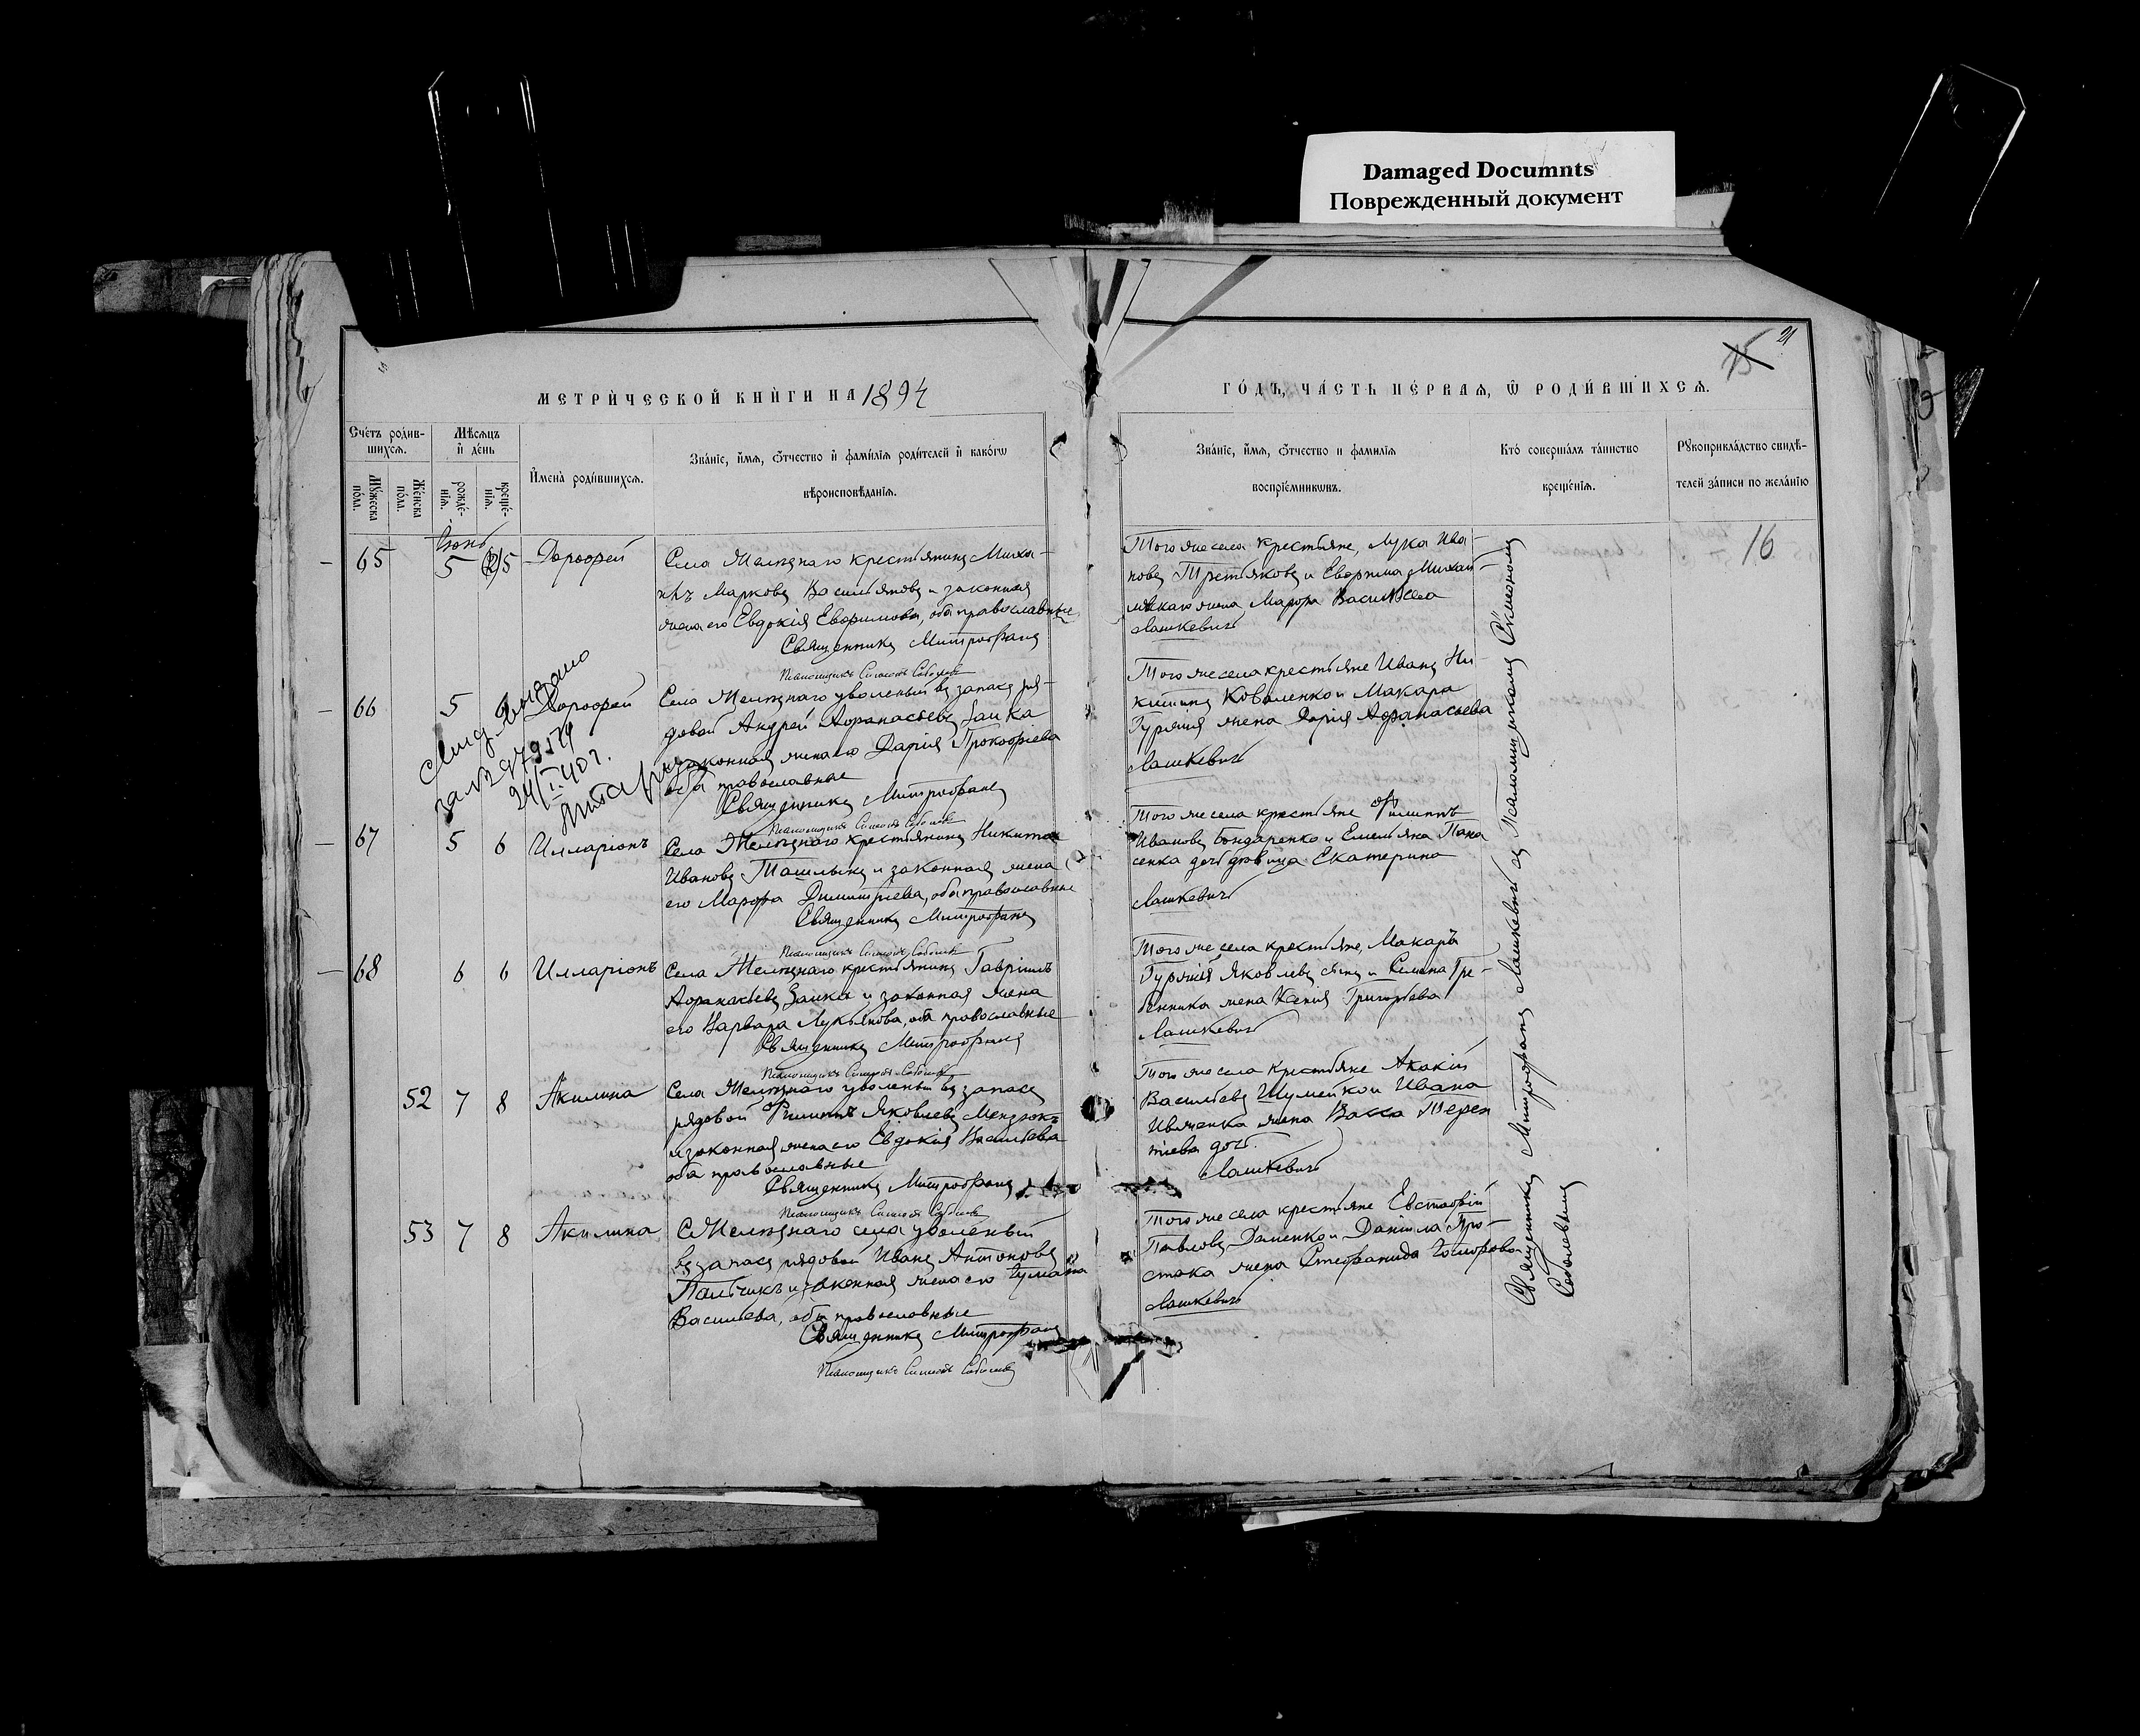 Damaged Documnts
Поврежденный документ
15 21
МЕТРИ́ЧЕСКОЙ КНИ́ГИ НА 1894
ГО́ДЪ, ЧА́СТЬ ПЕ́РВАЯ, Ѿ РОДИ́ВШИХСЯ.
Сче́тъ роди́в-
шихся.
Мѣ́сяцъ
и҆ де́нь
Мꙋ́жеска
по́ла.
Же́нска
по́ла.
рожде́-
нїя.
креще́-
нїя.
И҆мена̀ роди́вшихся.
Зва́нїе, и҆́мя, ѻ҆́тчество и҆ фами́лїя роди́телей и҆ како́гѡ
вѣроисповѣ́данїя.
Зва́нїе, и҆́мя, ѻ҆́тчество и фами́лїя
воспрїе́мникѡвъ.
Кто̀ соверша́лъ та́инство
креще́нїя.
Рꙋкоприкла́дство свидѣ́-
телей за́писи по жела́нїю
Іюнь
65 5 5 Дорофей
Села Желѣзнаго крестьянинъ Миха-
илъ Марковъ Васильяновъ и законная
жена его Евдокія Евфимова, оба православные
Священникъ Митрофанъ
Псаломщикъ Симеонъ Соболевъ
Того же села крестьяне, Лука Ива-
новъ Третьяковъ и Евфима Михай-
жена Марфа Васильева
Лашкевичъ
16
66 5 Дорофей
Села Желѣзнаго уволеный въ запасъ ря-
довой Андрей Афанасьевъ Заика
законная жена его Дарія Прокофіева
оба православные
Священникъ Митрофанъ
Псаломщикъ Симеонъ Соболевъ
Того же села крестьяне Иванъ Ни-
китинъ Коваленко и Макара
жена Дарія Афанасьева
Лашкевичъ
выдано
24/I 40 г.
67 5 6 Илларіонъ
Села Желѣзнаго крестьянинъ Никита
Ивановъ Ташлыкъ и законная жена
его Марфа Димитріева, оба православные
Священникъ Митрофанъ
Псаломщикъ Симеонъ Соболевъ
Того же села крестьяне Филиппъ
Ивановъ Бондаренко и Емельяна Пана
сенка дочь дѣвица Екатерина
Лашкевичъ
68 6 6 Илларіонъ
Села Желѣзнаго крестьянинъ Гавріилъ
Афанасьевъ Заика и законная жена
его Варвара Лукьянова, оба православные
Священникъ Митрофанъ
Псаломщикъ Симеонъ Соболевъ
Того же села крестьяне, Макаръ
Яковлевъ сынъ и Семена Гре-
бенника жена Ксенія Григорьева
Лашкевичъ
52 7 8 Акилина
Села Желѣзнаго уволеный въ запасъ
рядовой Филиппъ Яковлевъ
и законная жена его Евдокія Васильева
оба православные
Священникъ Митрофанъ
Псаломщикъ Симеонъ Соболевъ
Того же села крестьяне Акакій
Васильевъ Шумейко и Ивана
Ивженка жена Васса Терен
тіева дочь.
Лашкевичъ
53 7 8 Акилина
Желѣзнаго села уволеный
въ запасъ рядовой Иванъ Антоновъ
Пальчикъ и законная жена его
Васильева, оба православные
Священникъ Митрофанъ
Псаломщикъ Симеонъ Соболевъ
Того же села крестьяне Евстафій
Павловъ Даценко и Даніила Про-
стака жена Стефанида
Лашкевичъ
Священникъ Митрофанъ Лашкевичъ съ Псаломщикомъ Симеономъ
Соболевымъ